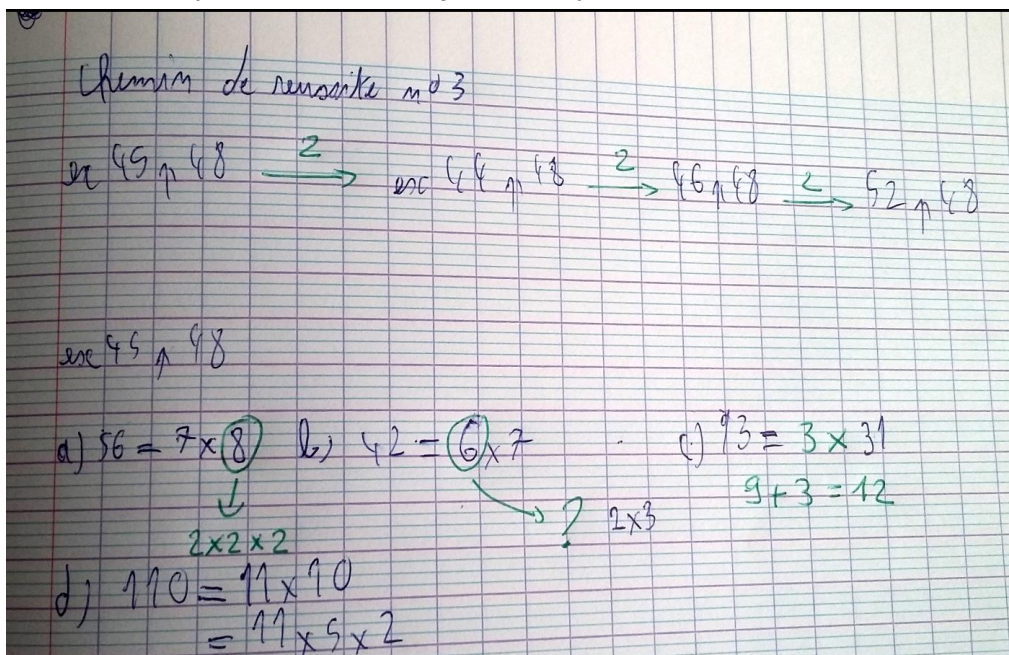 Chemin de reussite n°3
ex 45 p 48 2→ exc 44 p 48 2→ 46 p 48 2→ 52 p 48
exc 45 p 48
a) 56 = 7 × 8 b) 42 = 6 × 7 c) 93 = 3 × 31
9 + 3 = 12
? 2×3
2×2×2
d) 110 = 11 × 10
= 11 × 5 × 2